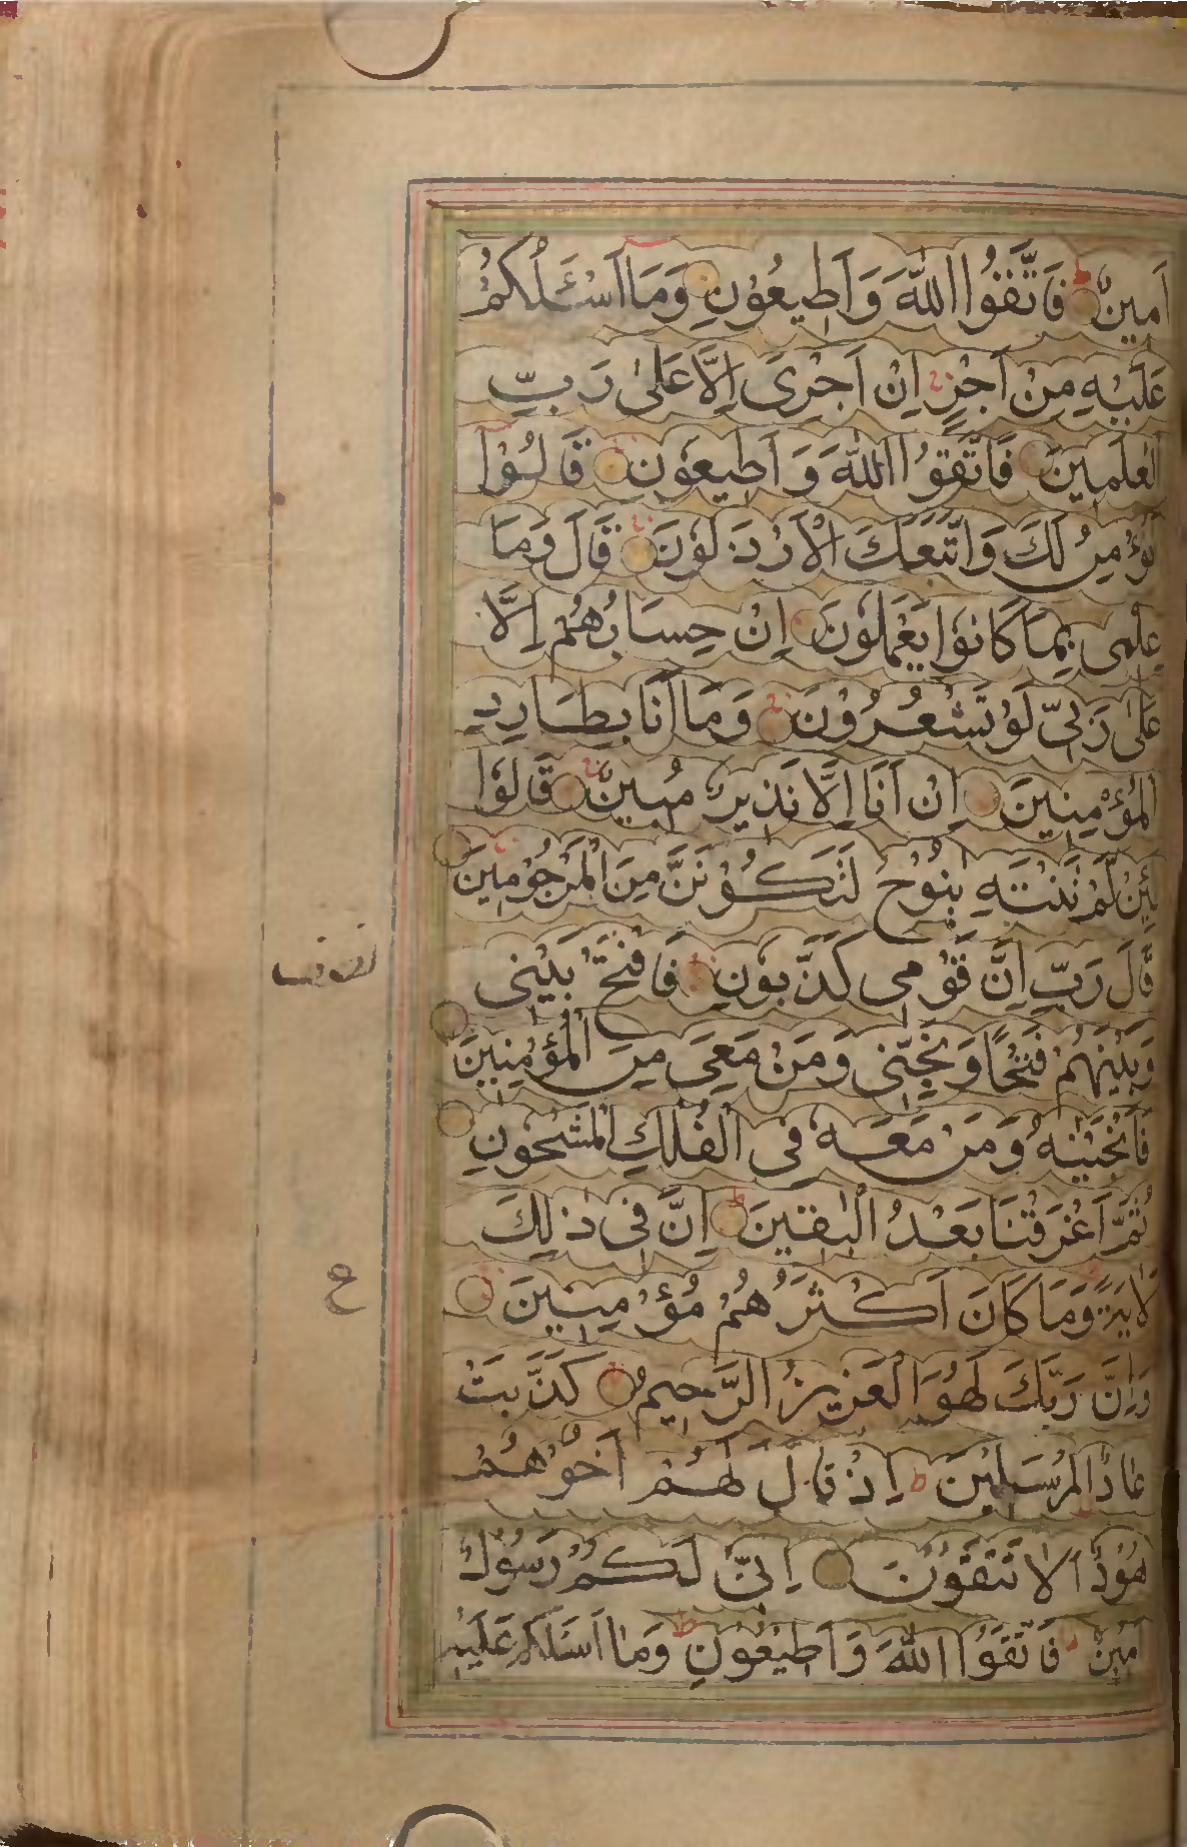 اَمِيْنٌ فَاتَّقُوا اللّٰهَ وَاَطِيْعُوْنِ وَمَا اَسْـَٔلُكُمْ
عَلَيْهِ مِنْ اَجْرٍ اِنْ اَجْرِىَ اِلَّا عَلٰى رَبِّ
الْعٰلَمِيْنَ فَاتَّقُوا اللّٰهَ وَاَطِيْعُوْنِ قَالُوْا
نُؤْمِنُ لَكَ وَاتَّبَعَكَ الْاَرْذَلُوْنَ قَالَ وَمَا
عِلْمِى بِمَا كَانُوْا يَعْمَلُوْنَ اِنْ حِسَابُهُمْ اِلَّا
عَلٰى رَبِّىْ لَوْ تَشْعُرُوْنَ وَمَا اَنَا بِطَارِدِ
الْمُؤْمِنِيْنَ اِنْ اَنَا اِلَّا نَذِيْرٌ مُّبِيْنٌ قَالُوْا
لَئِنْ لَّمْ تَنْتَهِ يٰنُوْحُ لَتَكُوْنَنَّ مِنَ الْمَرْجُوْمِيْنَ
قَالَ رَبِّ اِنَّ قَوْمِى كَذَّبُوْنِ فَافْتَحْ بَيْنِى
نصف
وَبَيْنَهُمْ فَتْحًا وَّنَجِّنِى وَمَنْ مَّعِىَ مِنَ الْمُؤْمِنِيْنَ
فَاَنْجَيْنٰهُ وَمَنْ مَّعَهٗ فِى الْفُلْكِ الْمَشْحُوْنِ
ثُمَّ اَغْرَقْنَا بَعْدُ الْبٰقِيْنَ اِنَّ فِى ذٰلِكَ
لَاٰيَةً وَمَا كَانَ اَكْثَرُهُمْ مُّؤْمِنِيْنَ
ع
وَاِنَّ رَبَّكَ لَهُوَ الْعَزِيْزُ الرَّحِيْمُ كَذَّبَتْ
عَادُ الْمُرْسَلِيْنَ اِذْ قَالَ لَهُمْ اَخُوْهُمْ
هُوْدٌ اَلَا تَتَّقُوْنَ اِنِّىْ لَكُمْ رَسُوْلٌ
اَمِيْنٌ فَاتَّقُوا اللّٰهَ وَاَطِيْعُوْنِ وَمَا اَسْـَٔلُكُمْ عَلَيْهِ